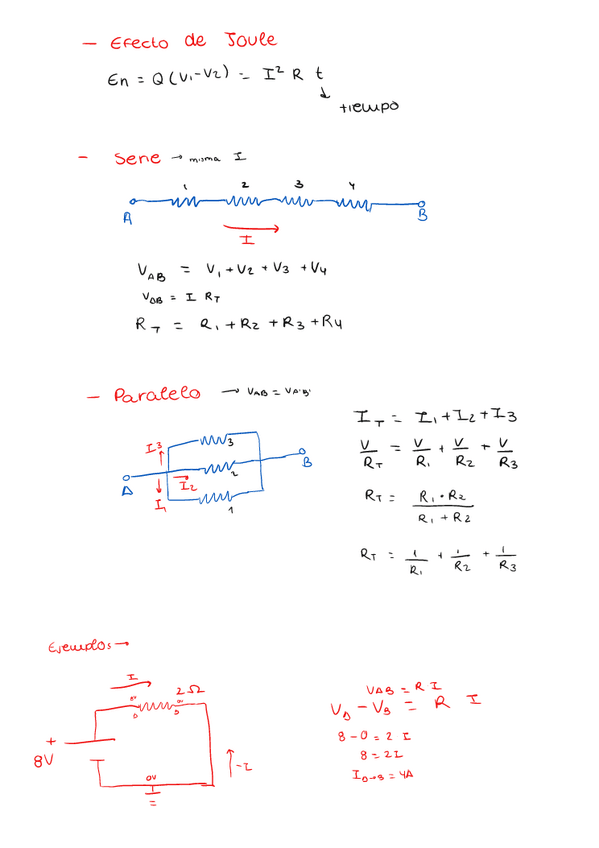 - Efecto de Joule
En = Q (V1-V2) = I² R t
tiempo
- Serie → misma I
1 2 3 4
A B
I
V_AB = V1 + V2 + V3 + V4
V_AB = I R_T
R_T = R1 + R2 + R3 + R4
- Paralelo → V_AB = V_A'B'
I3 3
A I2 2 B
I1 1
I_T = I1 + I2 + I3
V/R_T = V/R1 + V/R2 + V/R3
R_T = R1 · R2 / R1 + R2
R_T = 1/R1 + 1/R2 + 1/R3
Ejemplos →
I
8V 2Ω 0V
+
8V
-I
0V
V_AB = R I
V_A - V_B = R I
8 - 0 = 2 I
8 = 2I
I_A→B = 4A